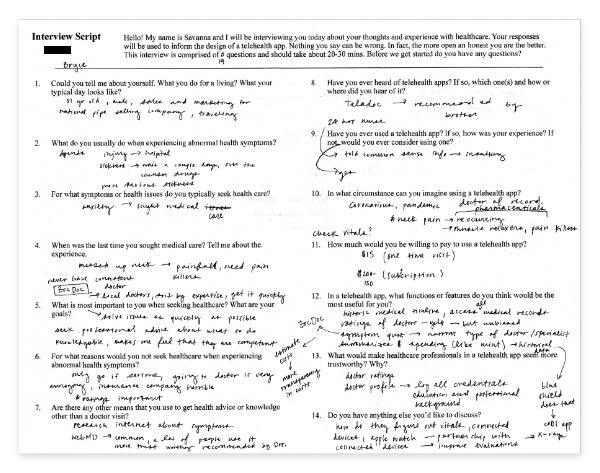 Interview Script
Hello! My name is Savanna and I will be interviewing you today about your thoughts and experience with healthcare. Your responses
will be used to inform the design of a telehealth app. Nothing you say can be wrong. In fact, the more open an honest you are the better.
This interview is comprised of # questions and should take about 20-30 mins. Before we get started do you have any questions?
19
Bryce
1. Could you tell me about yourself. What you do for a living? What your
typical day looks like?
31 yr old, male, sales and marketing for
national pipe selling company, traveling
2. What do you usually do when experiencing abnormal health symptoms?
depends injury → hospital
sickness → wait a couple days, over the
counter drugs
more serious sickness
3. For what symptoms or health issues do you typically seek health care?
anxiety → sought medical
care
4. When was the last time you sought medical care? Tell me about the
experience.
messed up neck → painful, need pain
killers
never have consistent
doctor
ZocDoc
→ local doctors, sort by expertise, get it quickly
5. What is most important to you when seeking healthcare? What are your
goals?
→ solve issue as quickly as possible
seek professional advice about what to do
knowledgable, makes me feel that they are competent
6. For what reasons would you not seek healthcare when experiencing
abnormal health symptoms?
only go if serious, going to doctor is very
annoying, insurance company horrible
* ratings important
estimate
costs
more
transparency
in costs
7. Are there any other means that you use to get health advice or knowledge
other than a doctor visit?
research internet about symptoms
WebMD → common, a lot of people use it
more trust worthy recommended by Drs.
8. Have you ever heard of telehealth apps? If so, which one(s) and how or
where did you hear of it?
Teladoc → recommended by
brother
24 hr nurse
9. Have you ever used a telehealth app? If so, how was your experience? If
not, would you ever consider using one?
→ told common sense info → insulting
→ yes
10. In what circumstance can you imagine using a telehealth app?
Coronavirus, pandemic doctor of record,
pharmaceuticals
* neck pain → reocurring
→ muscle relaxers, pain killers
check vitals?
11. How much would you be willing to pay to use a telehealth app?
$15 (one time visit)
$100-
150
(subscription)
12. In a telehealth app, what functions or features do you think would be the
most useful for you?
historic medical timeline, access all medical records
ratings of doctor → yelp → but unbiased
ZocDoc
symptom quiz → narrows type of doctor/specialist
summarizes $ spending (like mint) → historical
13. What would make healthcare professionals in a telehealth app seem more
trustworthy? Why?
doctor ratings
doctor profile → log all credentials
education and professional
background
blue
shield
does that
14. Do you have anything else you'd like to discuss?
how do they figure out vitals, connected
devices, apple watch → partnership with
connected devices → improve evaluations
→ x-rays